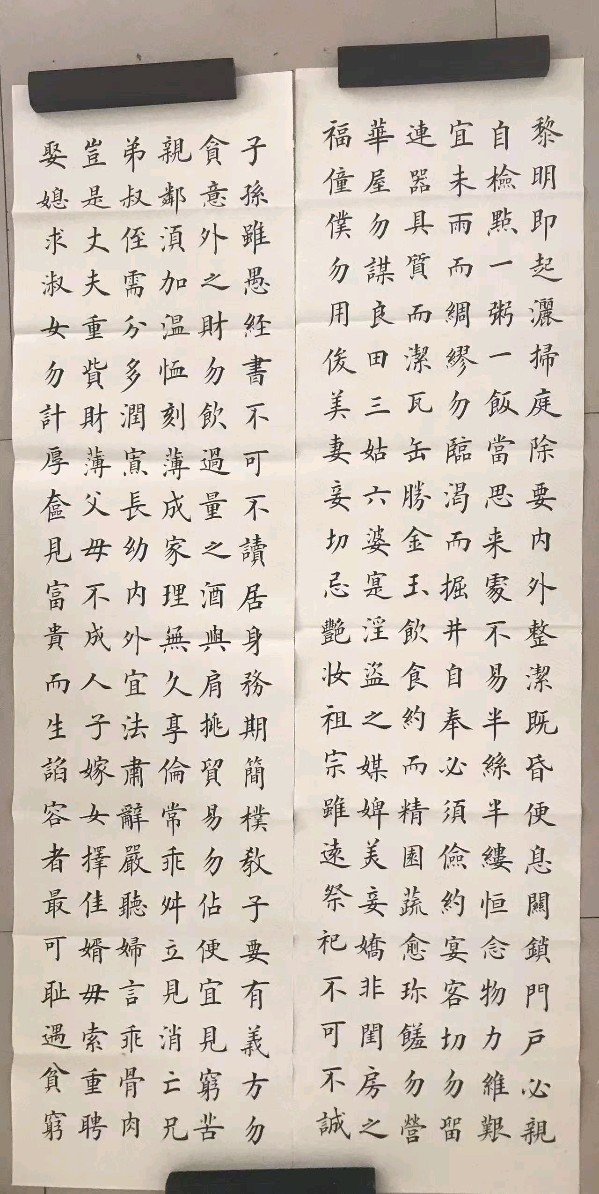 黎明即起灑掃庭除要内外整潔既昏便息關鎖門戶必親
自檢點一粥一飯當思来處不易半絲半縷恒念物力維艱
宜未雨而綢繆勿臨渴而掘井自奉必須儉約宴客切勿留
連器具質而潔瓦缶勝金玉飲食約而精園蔬愈珎饈勿營
華屋勿謀良田三姑六婆寔淫盜之媒婢美妾嬌非閨房之
福僮僕勿用俊美妻妾切忌艷妝祖宗雖遠祭祀不可不誠
子孫雖愚經書不可不讀居身務期簡樸教子要有義方勿
貪意外之財勿飲過量之酒與肩挑貿易勿佔便宜見窮苦
親鄰須加温恤刻薄成家理無久享倫常乖舛立見消亡兄
弟叔侄需分多潤寡長幼内外宜法肅辭嚴聽婦言乖骨肉
豈是丈夫重貲財薄父母不成人子嫁女擇佳婿毋索重聘
娶媳求淑女勿計厚奩見富貴而生諂容者最可耻遇貧窮